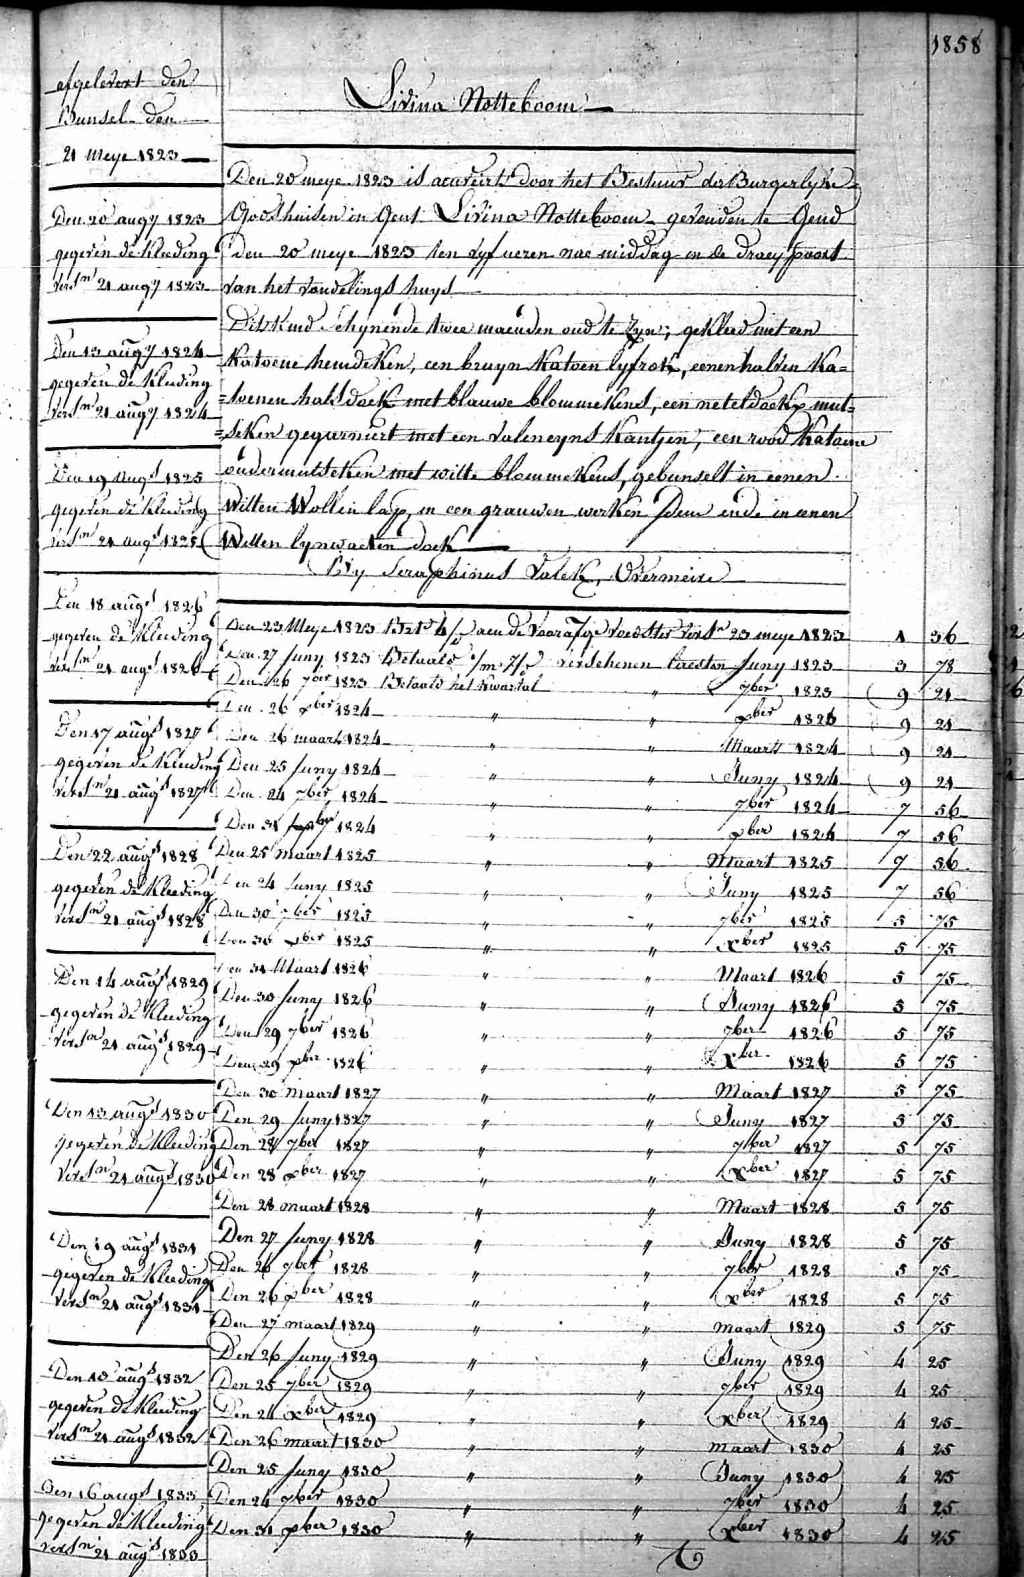 1858
afgelevert den
Bunsel den
21 Meye 1823
Livina Notteboom
Den 20 meye 1823 is acureirt door het Bestuur der Burgerlyke
Godshuisen in Gent Livina Notteboom gevonden te Gend
den 20 meye 1823 ten vyf ueren nae middag in de draeypoort
van het vondelings huys
Dit kind schynende twee maenden oud te zyn; gekleed met een
katoene hemdeken, een bruyn katoen lyfrok, eenen halven ka=
=toenen halsdoek met blauwe blommekens, een neteldoekx mut=
=seken gegarniert met een valencyns kantjen, een rood katoene
ondermutseken met witte blommekens, gebunselt in eenen
witten wollen lap, en een grauwen werken Deun ende in eenen
witten lynwaeten doek
By Seraphinus Valck, Overmeire
Den 20 augy 1823
gegeven de Kleeding
versn 21 augy 1823
Den 13 augy 1824
gegeven de Kleeding
versn 21 augy 1824
Den 19 augt 1825
gegeven de Kleeding
versn 21 augt 1825
Den 18 augt 1826
gegeven de Kleeding
versn 21 augt 1826
Den 17 augt 1827
gegeven de Kleeding
versn 21 augt 1827
Den 22 augt 1828
gegeven de Kleeding
versn 21 augt 1828
Den 14 augt 1829
gegeven de Kleeding
versn 21 augt 1829
Den 13 augt 1830
gegeven de Kleeding
versn 21 augt 1830
Den 19 augt 1831
gegeven de Kleeding
versn 21 augt 1831
Den 15 augt 1832
gegeven de Kleeding
versn 21 augt 1832
Den 16 augt 1833
gegeven de Kleeding
versn 21 augt 1833
Den 23 Meye 1823 aen de voorafge voedster versn 23 meye 1823 1 36
Den 27 Juny 1823 Betaald verschenen Juny 1823 3 78
Den 26 7ber 1823 Betaald het Kwartal " 7ber 1823 9 21
Den 26 xber 1824 " " xber 1823 9 21
Den 26 maart 1824 " " Maart 1824 9 21
Den 25 Juny 1824 " " Juny 1824 9 21
Den 24 7ber 1824 " " 7ber 1824 7 56
Den 31 xber 1824 " " xber 1824 7 56
Den 25 maart 1825 " " Maart 1825 7 56
Den 24 Juny 1825 " " Juny 1825 7 56
Den 30 7ber 1825 " " 7ber 1825 5 75
Den 30 xber 1825 " " xber 1825 5 75
Den 31 Maart 1826 " " Maart 1826 5 75
Den 30 Juny 1826 " " Juny 1826 5 75
Den 29 7ber 1826 " " 7ber 1826 5 75
Den 29 xber 1826 " " xber 1826 5 75
Den 30 maart 1827 " " Maart 1827 5 75
Den 29 Juny 1827 " " Juny 1827 5 75
Den 28 7ber 1827 " " 7ber 1827 5 75
Den 28 xber 1827 " " xber 1827 5 75
Den 28 maart 1828 " " Maart 1828 5 75
Den 27 Juny 1828 " " Juny 1828 5 75
Den 26 7ber 1828 " " 7ber 1828 5 75
Den 26 xber 1828 " " xber 1828 5 75
Den 27 maart 1829 " " maart 1829 5 75
Den 26 Juny 1829 " " Juny 1829 4 25
Den 25 7ber 1829 " " 7ber 1829 4 25
Den 24 xber 1829 " " xber 1829 4 25
Den 26 maart 1830 " " maart 1830 4 25
Den 25 Juny 1830 " " Juny 1830 4 25
Den 24 7ber 1830 " " 7ber 1830 4 25
Den 31 xber 1830 " " xber 1830 4 25